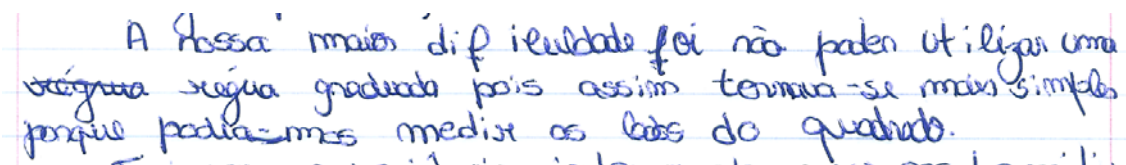 A nossa maior dificuldade foi não poder utilizar uma
régua graduada pois assim tornava-se mais simples
porque podia-mos medir os lados do quadrado.